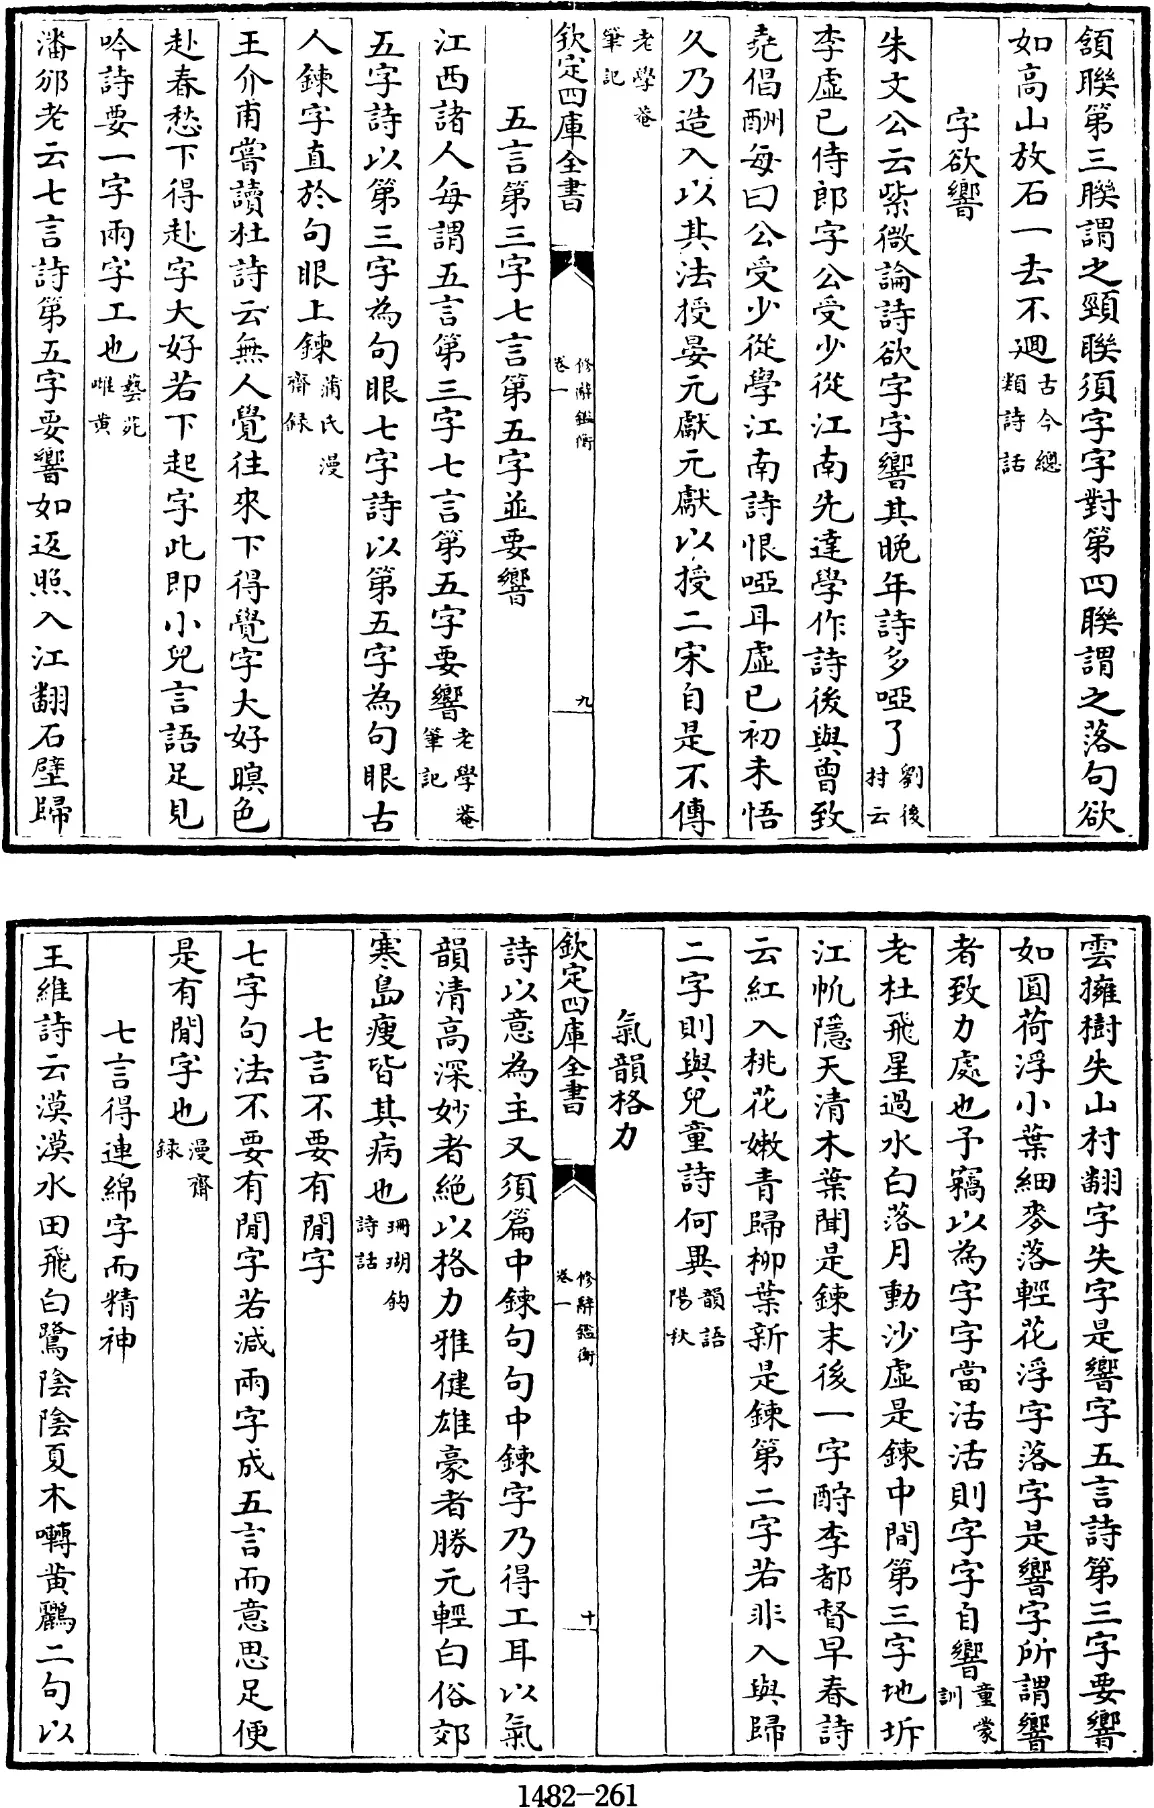 頷聯第三聯謂之頸聯須字字對第四聯謂之落句欲
如高山放石一去不廻古今總類詩話
字欲響
朱文公云紫微論詩欲字字響其晚年詩多啞了劉後村云
李虛已侍郎字公受少從江南先達學作詩後與曾致
堯倡酬每曰公受少從學江南詩恨啞耳虛已初未悟
久乃造入以其法授晏元獻元獻以授二宋自是不傳
老學菴筆記
欽定四庫全書
修辭鑑衡
卷一
九
五言第三字七言第五字並要響
江西諸人每謂五言第三字七言第五字要響老學菴筆記
五字詩以第三字為句眼七字詩以第五字為句眼古
人鍊字直於句眼上鍊蒲氏漫齋錄
王介甫嘗讀杜詩云無人覺往來下得覺字大好暝色
赴春愁下得赴字大好若下起字此即小兒言語足見
吟詩要一字兩字工也藝苑雌黄
潘邠老云七言詩第五字要響如返照入江翻石壁歸
雲擁樹失山村翻字失字是響字五言詩第三字要響
如圓荷浮小葉細麥落輕花浮字落字是響字所謂響
者致力處也予竊以為字字當活活則字字自響童蒙訓
老杜飛星過水白落月動沙虛是鍊中間第三字地坼
江帆隱天清木葉聞是鍊末後一字酧李都督早春詩
云紅入桃花嫩青歸柳葉新是鍊第二字若非入與歸
二字則與兒童詩何異韻語陽秋
氣韻格力
欽定四庫全書
修辭鑑衡
卷一
十
詩以意為主又須篇中鍊句句中鍊字乃得工耳以氣
韻清高深妙者絶以格力雅健雄豪者勝元輕白俗郊
寒島瘦皆其病也珊瑚鈎詩話
七言不要有閒字
七字句法不要有閒字若減兩字成五言而意思足便
是有閒字也漫齋錄
七言得連綿字而精神
王維詩云漠漠水田飛白鷺陰陰夏木囀黄鸝二句以
1482-261